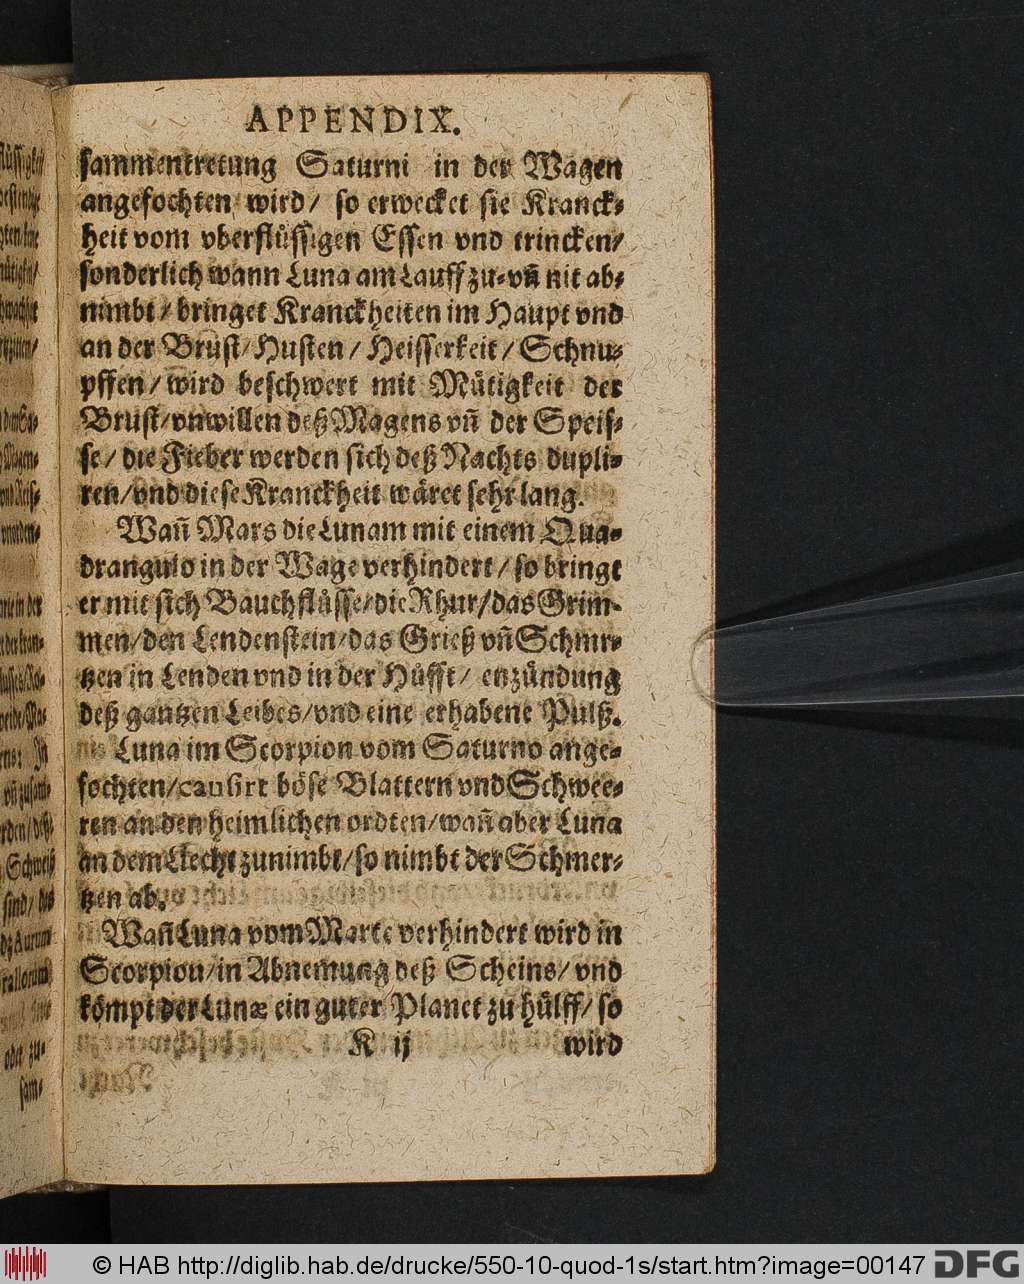 APPENDIX.
sammentretung Saturni in der Wagen
angefochten wird/ so erwecket sie Kranck⸗
heit vom vberflüssigen Essen vnd trincken/
sonderlich wann Luna am Lauff zu⸗ vñ nit ab⸗
nimbt/ bringet Kranckheiten im Haupt vnd
an der Brust/ Husten/ Heisserkeit/ Schnu⸗
pffen/ wird beschwert mit Mütigkeit der
Brust/ vnwillen deß Magens vñ der Speis⸗
se/ die Fieber werden sich deß Nachts dupli⸗
ren/ vnd diese Kranckheit wäret sehr lang.
Wañ Mars die Lunam mit einem Qua⸗
drangulo in der Wage verhindert/ so bringt
er mit sich Bauchflüsse/ die Rhur/ das Grim⸗
men/ den Lendenstein/ das Grieß vñ Schmr⸗
tzen in Lenden vnd in der Hüfft/ enzündung
deß gantzen Leibes/ vnd eine erhabene Pulß.
Luna im Scorpion vom Saturno ange⸗
fochten/ causirt böse Blattern vnd Schwee⸗
ren an den heimlichen ordten/ wañ aber Luna
an dem Liecht zunimbt/ so nimbt der Schmer⸗
tzen ab.
Wañ Luna vom Marte verhindert wird in
Scorpion/ in Abnemung deß Scheins/ vnd
kömpt der Lunæ ein guter Planet zu hülff/ so
K ij wird
© HAB http://diglib.hab.de/drucke/550-10-quod-1s/start.htm?image=00147 DFG